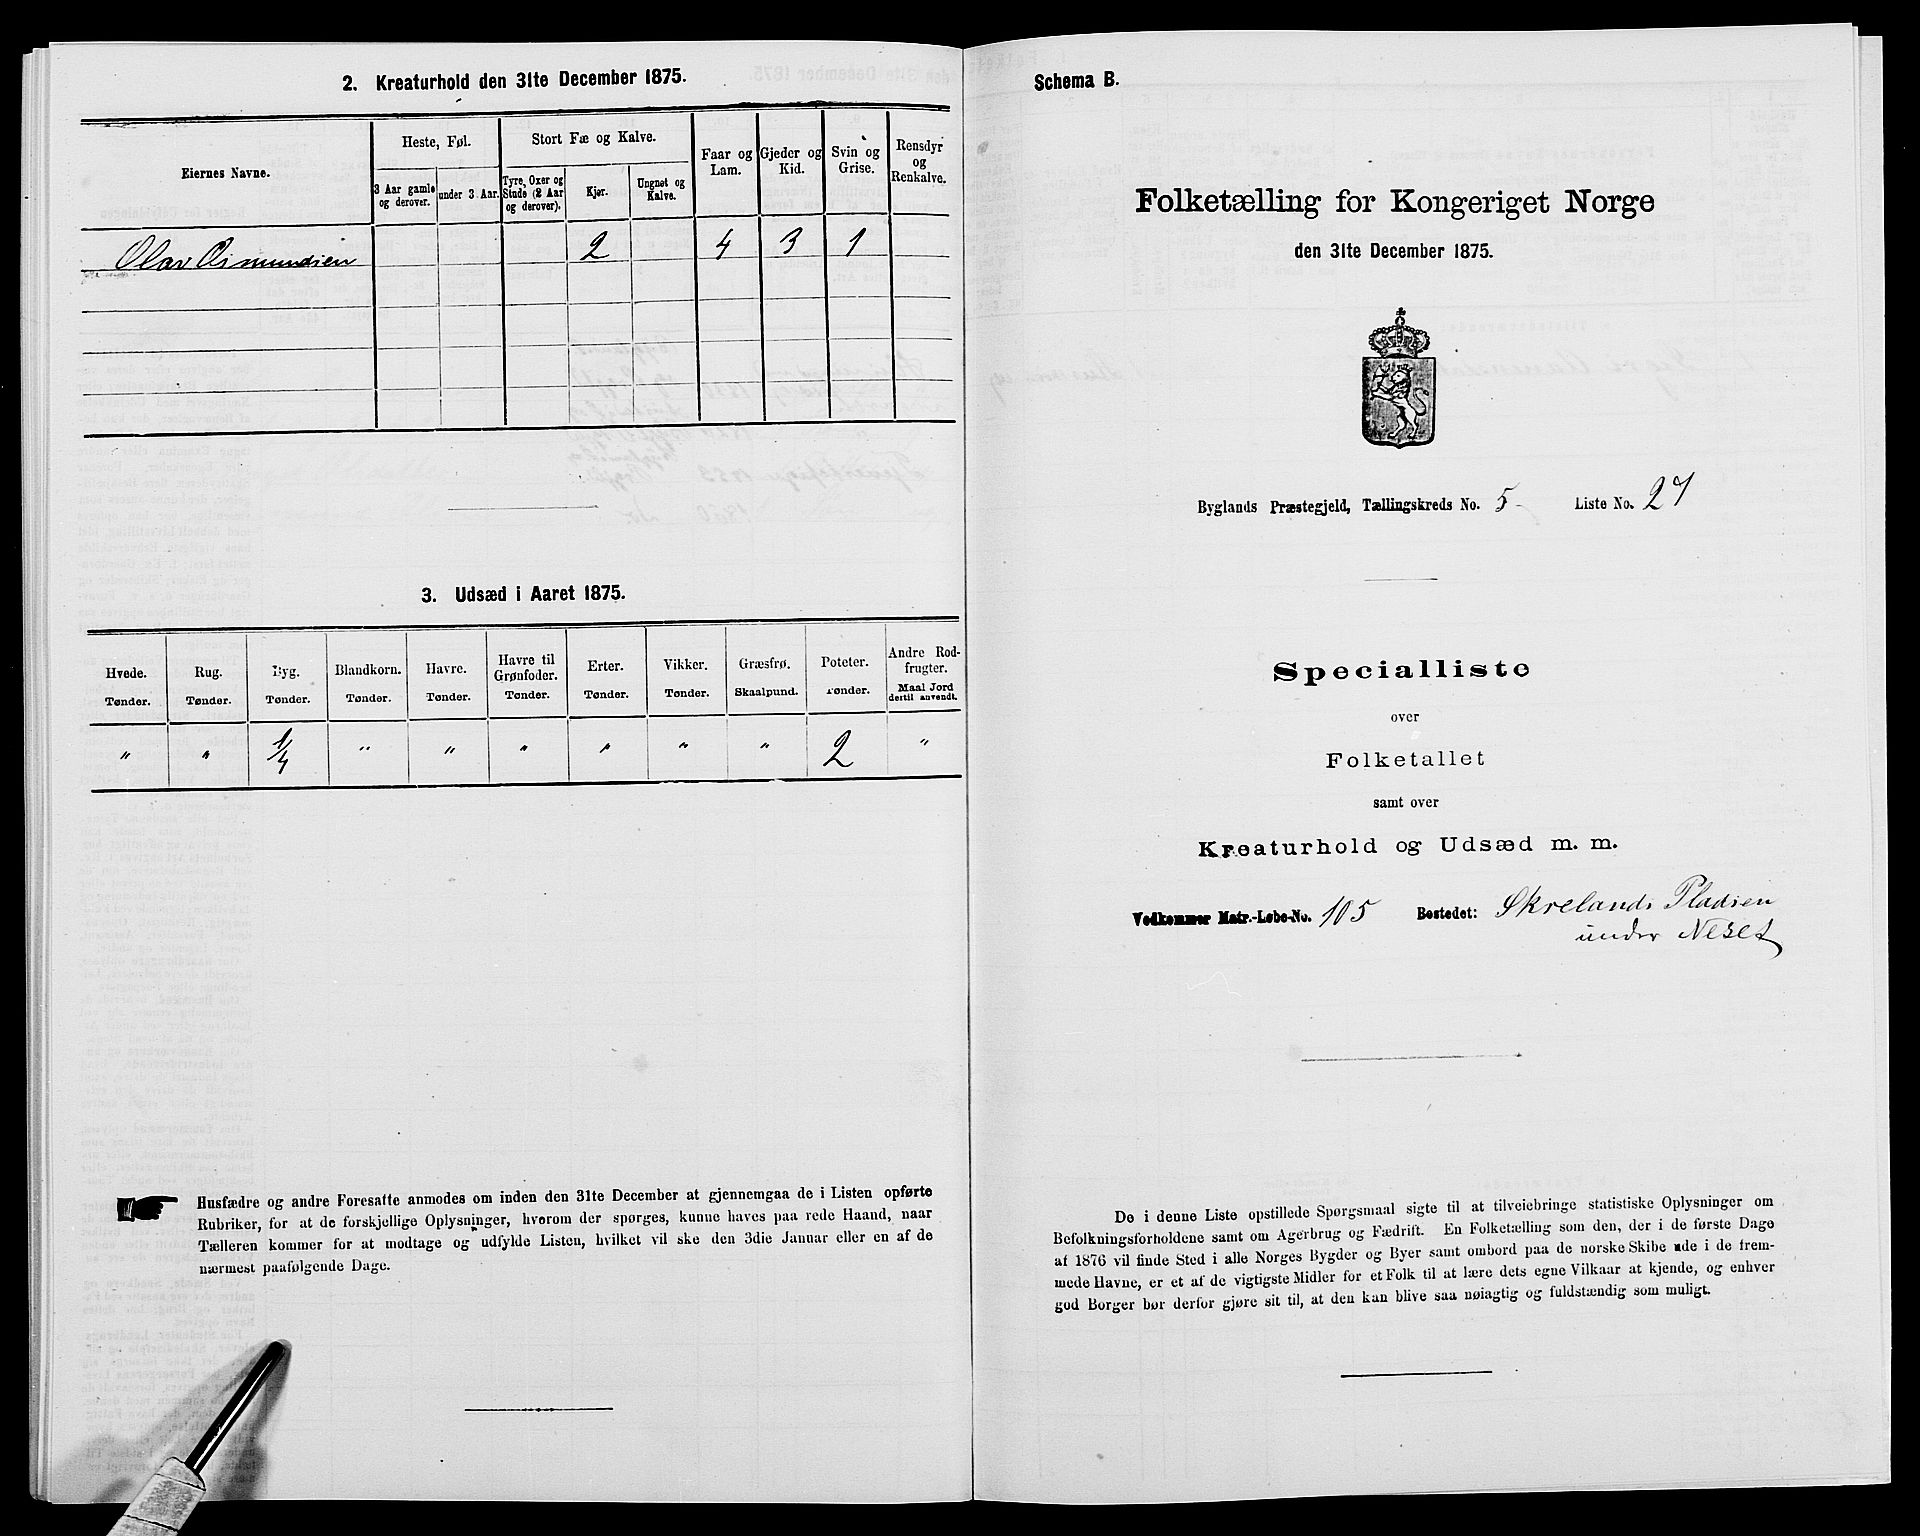 2. Kreaturhold den 31te December 1875.
Eiernes Navne.
Heste, Føl.
3 Aar gamle og derover.
under 3 Aar.
Stort Fæ og Kalve.
Tyre, Oxer og Stude (2 Aar og derover).
Kjør.
Ungnøt og Kalve.
Faar og Lam.
Gjeder og Kid.
Svin og Grise.
Rensdyr og Renkalve.
Olav Osmundsen 2 4 3 1
3. Udsæd i Aaret 1875.
Hvede. Rug. Byg. Blandkorn. Havre. Havre til Grønfoder. Erter. Vikker. Græsfrø. Poteter. Andre Rodfrugter.
Tønder. Tønder. Tønder. Tønder. Tønder. Tønder. Tønder. Tønder. Skaalpund. Tønder. Maal Jord dertil anvendt.
" " 1/4 " " " " " " 2 "
Husfædre og andre Foresatte anmodes om inden den 31te December at gjennemgaa de i Listen opførte
Rubriker, for at de forskjellige Oplysninger, hvorom der spørges, kunne haves paa rede Haand, naar
Tælleren kommer for at modtage og udfylde Listen, hvilket vil ske den 3die Januar eller en af de
nærmest paafølgende Dage.
Schema B.
Folketælling for Kongeriget Norge
den 31te December 1875.
Byglands Præstegjeld, Tællingskreds No. 5 Liste No. 27
Specialliste
over
Folketallet
samt over
Kreaturhold og Udsæd m. m.
Vedkommer Matr.-Løbe-No. 105 Bostedet: Skrelands Pladsen
under Neset
De i denne Liste opstillede Spørgsmaal sigte til at tilveiebringe statistiske Oplysninger om
Befolkningsforholdene samt om Agerbrug og Fædrift. En Folketælling som den, der i de første Dage
af 1876 vil finde Sted i alle Norges Bygder og Byer samt ombord paa de norske Skibe ude i de frem-
mede Havne, er et af de vigtigste Midler for et Folk til at lære dets egne Vilkaar at kjende, og enhver
god Borger bør derfor gjøre sit til, at den kan blive saa nøiagtig og fuldstændig som muligt.